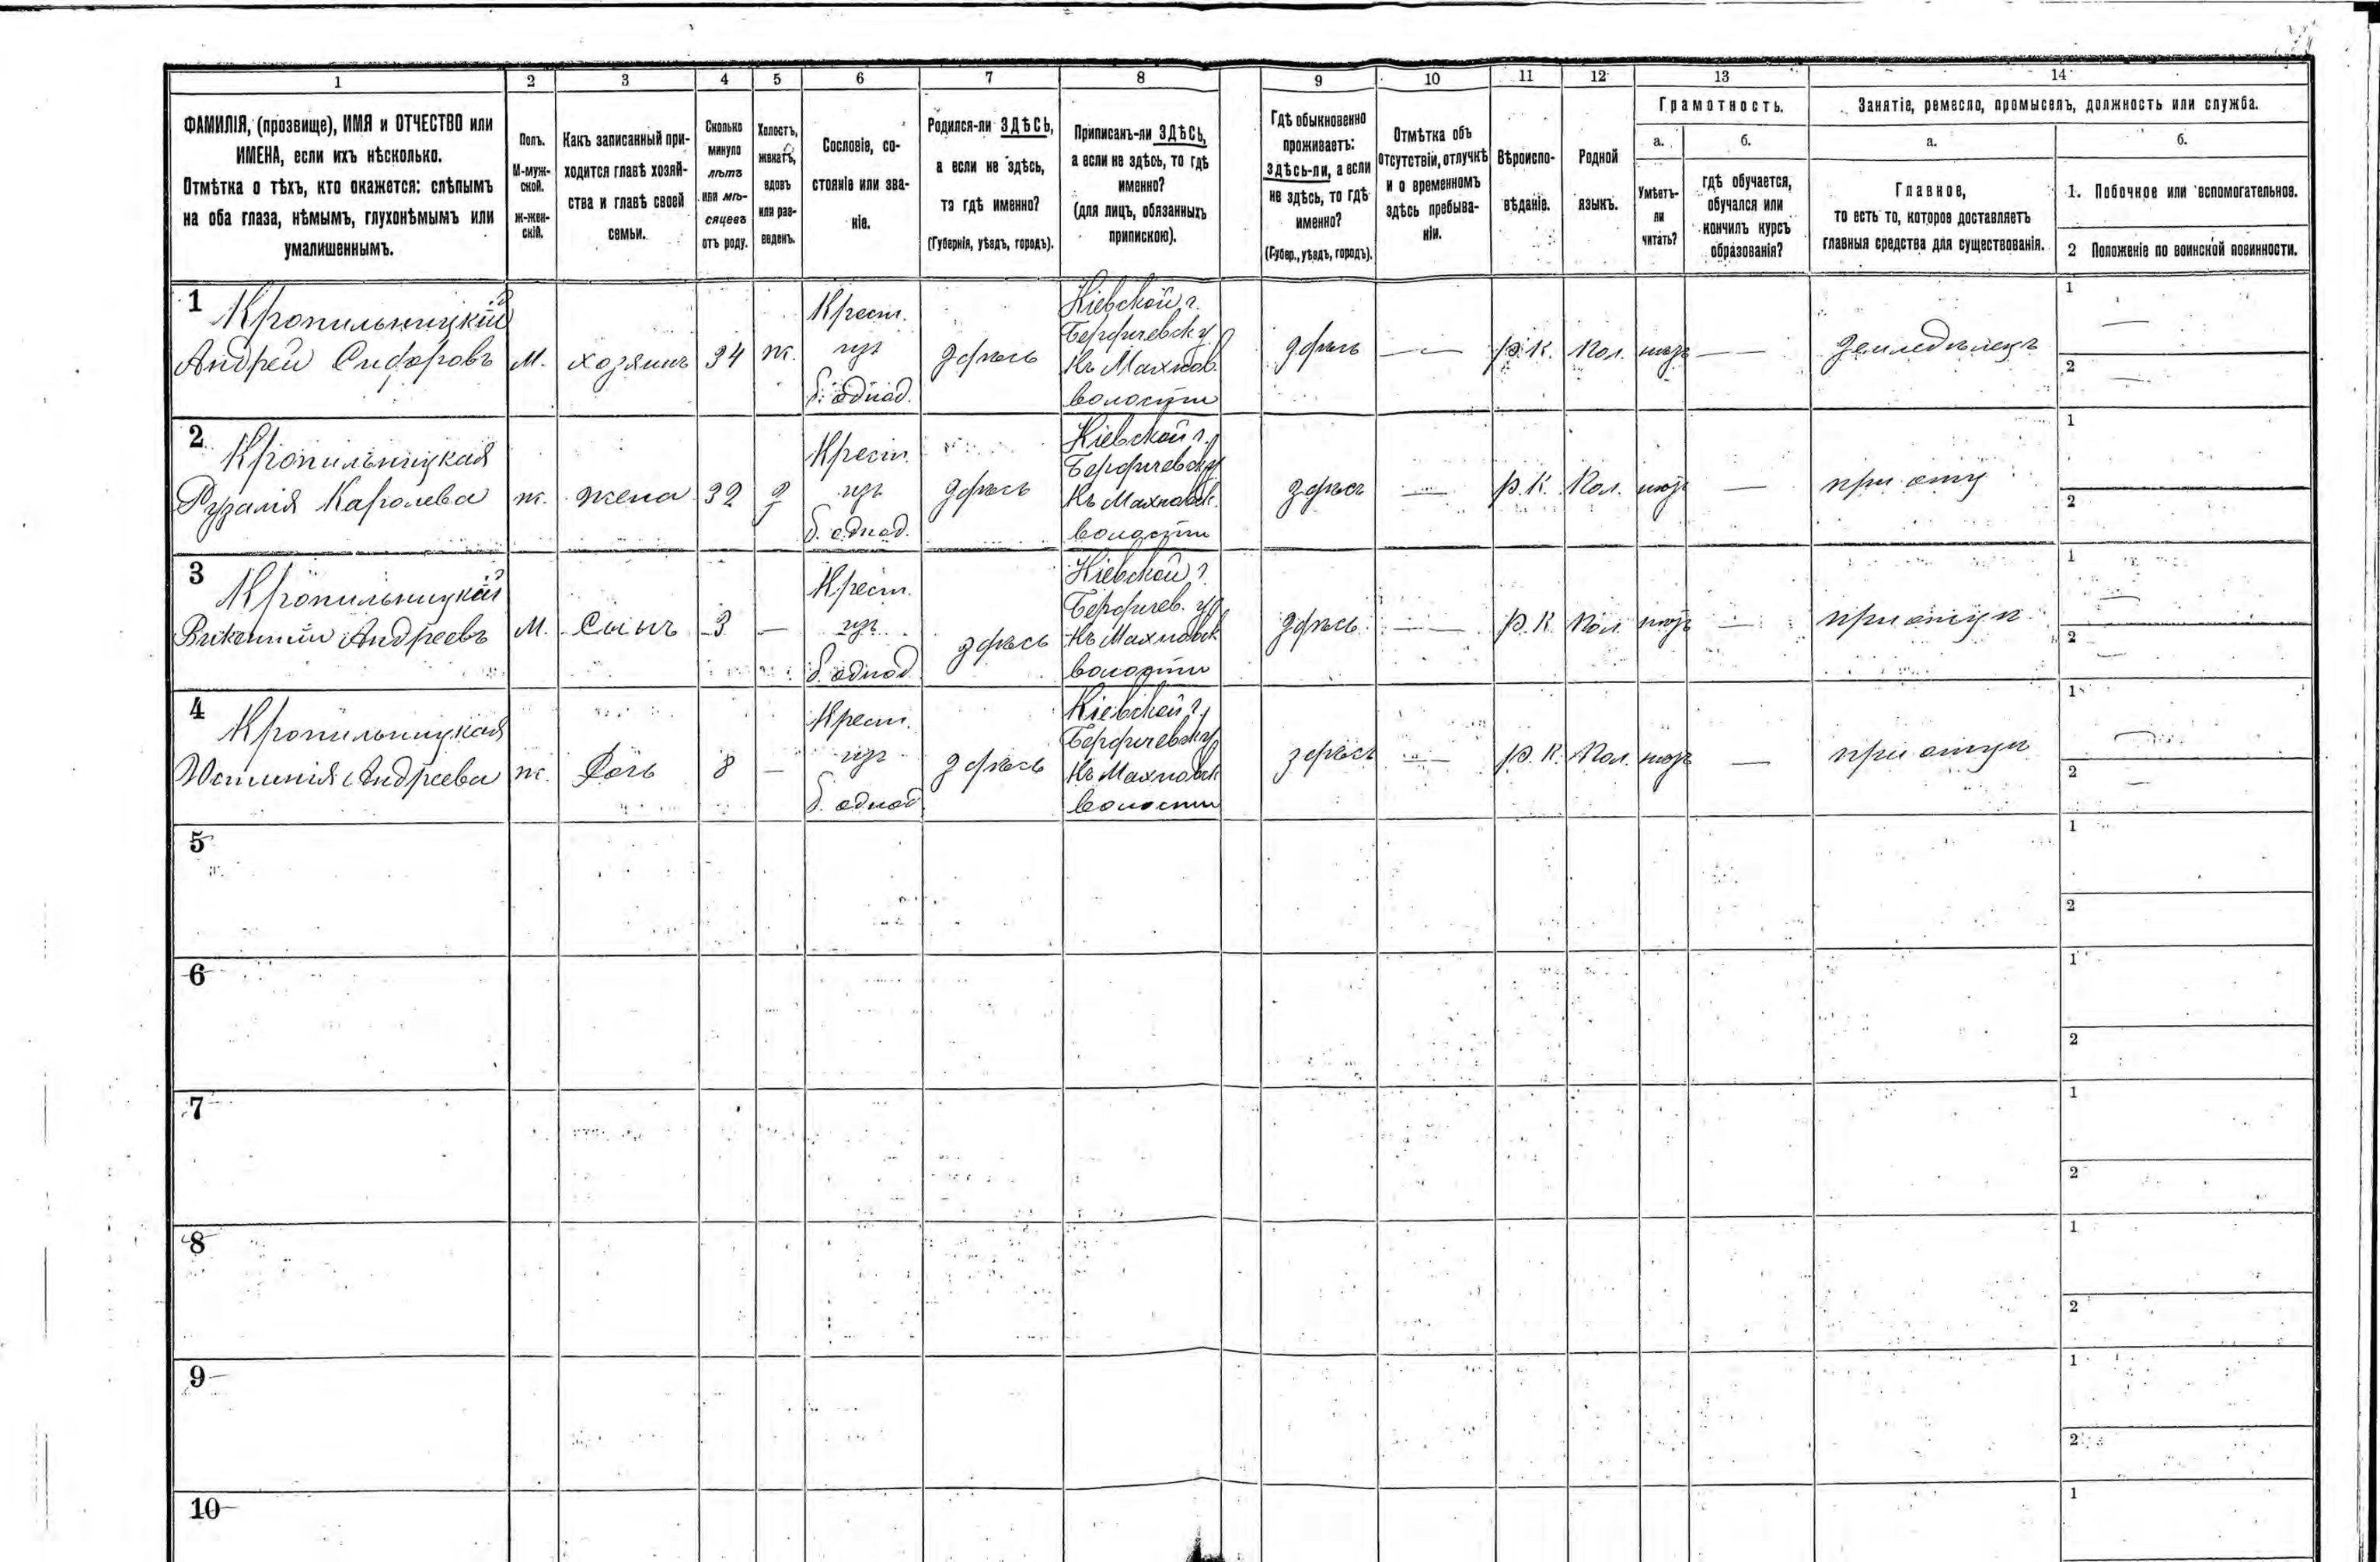 1 2 3 4 5 6 7 8 9 10 11 12 13 14
ФАМИЛІЯ, (прозвище), ИМЯ и ОТЧЕСТВО или
ИМЕНА, если ихъ нѣсколько.
Отмѣтка о тѣхъ, кто окажется: слѣпымъ
на оба глаза, нѣмымъ, глухонѣмымъ или
умалишеннымъ.
Полъ.
М-муж-
ской.
ж-жен-
скій.
Какъ записанный при-
ходится главѣ хозяй-
ства и главѣ своей
семьи.
Сколько
минуло
лѣтъ
или мѣ-
сяцевъ
отъ роду.
Холостъ,
женатъ,
вдовъ
или раз-
веденъ.
Сословіе, со-
стояніе или зва-
ніе.
Родился-ли ЗДѢСЬ,
а если не здѣсь,
то гдѣ именно?
(Губернія, уѣздъ, городъ).
Приписанъ-ли ЗДѢСЬ,
а если не здѣсь, то гдѣ
именно?
(для лицъ, обязанныхъ
припискою).
Гдѣ обыкновенно
проживаетъ:
ЗДѢСЬ-ли, а если
не здѣсь, то гдѣ
именно?
(Губер., уѣздъ, городъ).
Отмѣтка объ
отсутствіи, отлучкѣ
и о временномъ
здѣсь пребыва-
ніи.
Вѣроиспо-
вѣданіе.
Родной
языкъ.
Грамотность.
а.
Умѣетъ-
ли
читать?
б.
гдѣ обучается,
обучался или
кончилъ курсъ
образованія?
Занятіе, ремесло, промыселъ, должность или служба.
а.
Главное,
то есть то, которое доставляетъ
главныя средства для существованія.
б.
1. Побочное или вспомогательное.
2 Положеніе по воинской повинности.
1
Кропильницкій
Андрей Сидоровъ
М.
хозяинъ
34
ж.
Крест.
изъ
б. однод.
здѣсь
Кіевской г.
Бердичевск. у
Къ Махнов.
волости
здѣсь
— —
р. к.
Пол.
— —
земледѣлецъ
1
—
2
—
2
Кропильницкая
Рузалія Каролева
ж.
жена
32
з
Крест.
изъ
б. однод.
здѣсь
Кіевской г.
Бердичевск. у
Къ Махновск.
волости
здѣсь
—
р. к.
Пол.
—
при отц
1
2
3
Кропильницкій
Викентій Андреевъ
М.
Сынъ
3
—
Крест.
изъ
б. однод
здѣсь
Кіевской г.
Бердичев. у
Къ Махновск
волости
здѣсь
— —
р. к
Пол
—
при отцѣ
1
—
2
—
4
Кропильницкая
Юстинія Андреева
ж.
Дочь
8
—
Крест.
изъ
б. однод
здѣсь
Кіевской г.
Бердичевск. у
Къ Махновск
волости
здѣсь
—
р. к.
Пол.
—
при отцѣ
1
—
2
—
5
1
2
6
1
2
7
1
2
8
1
2
9
1
2
10
1